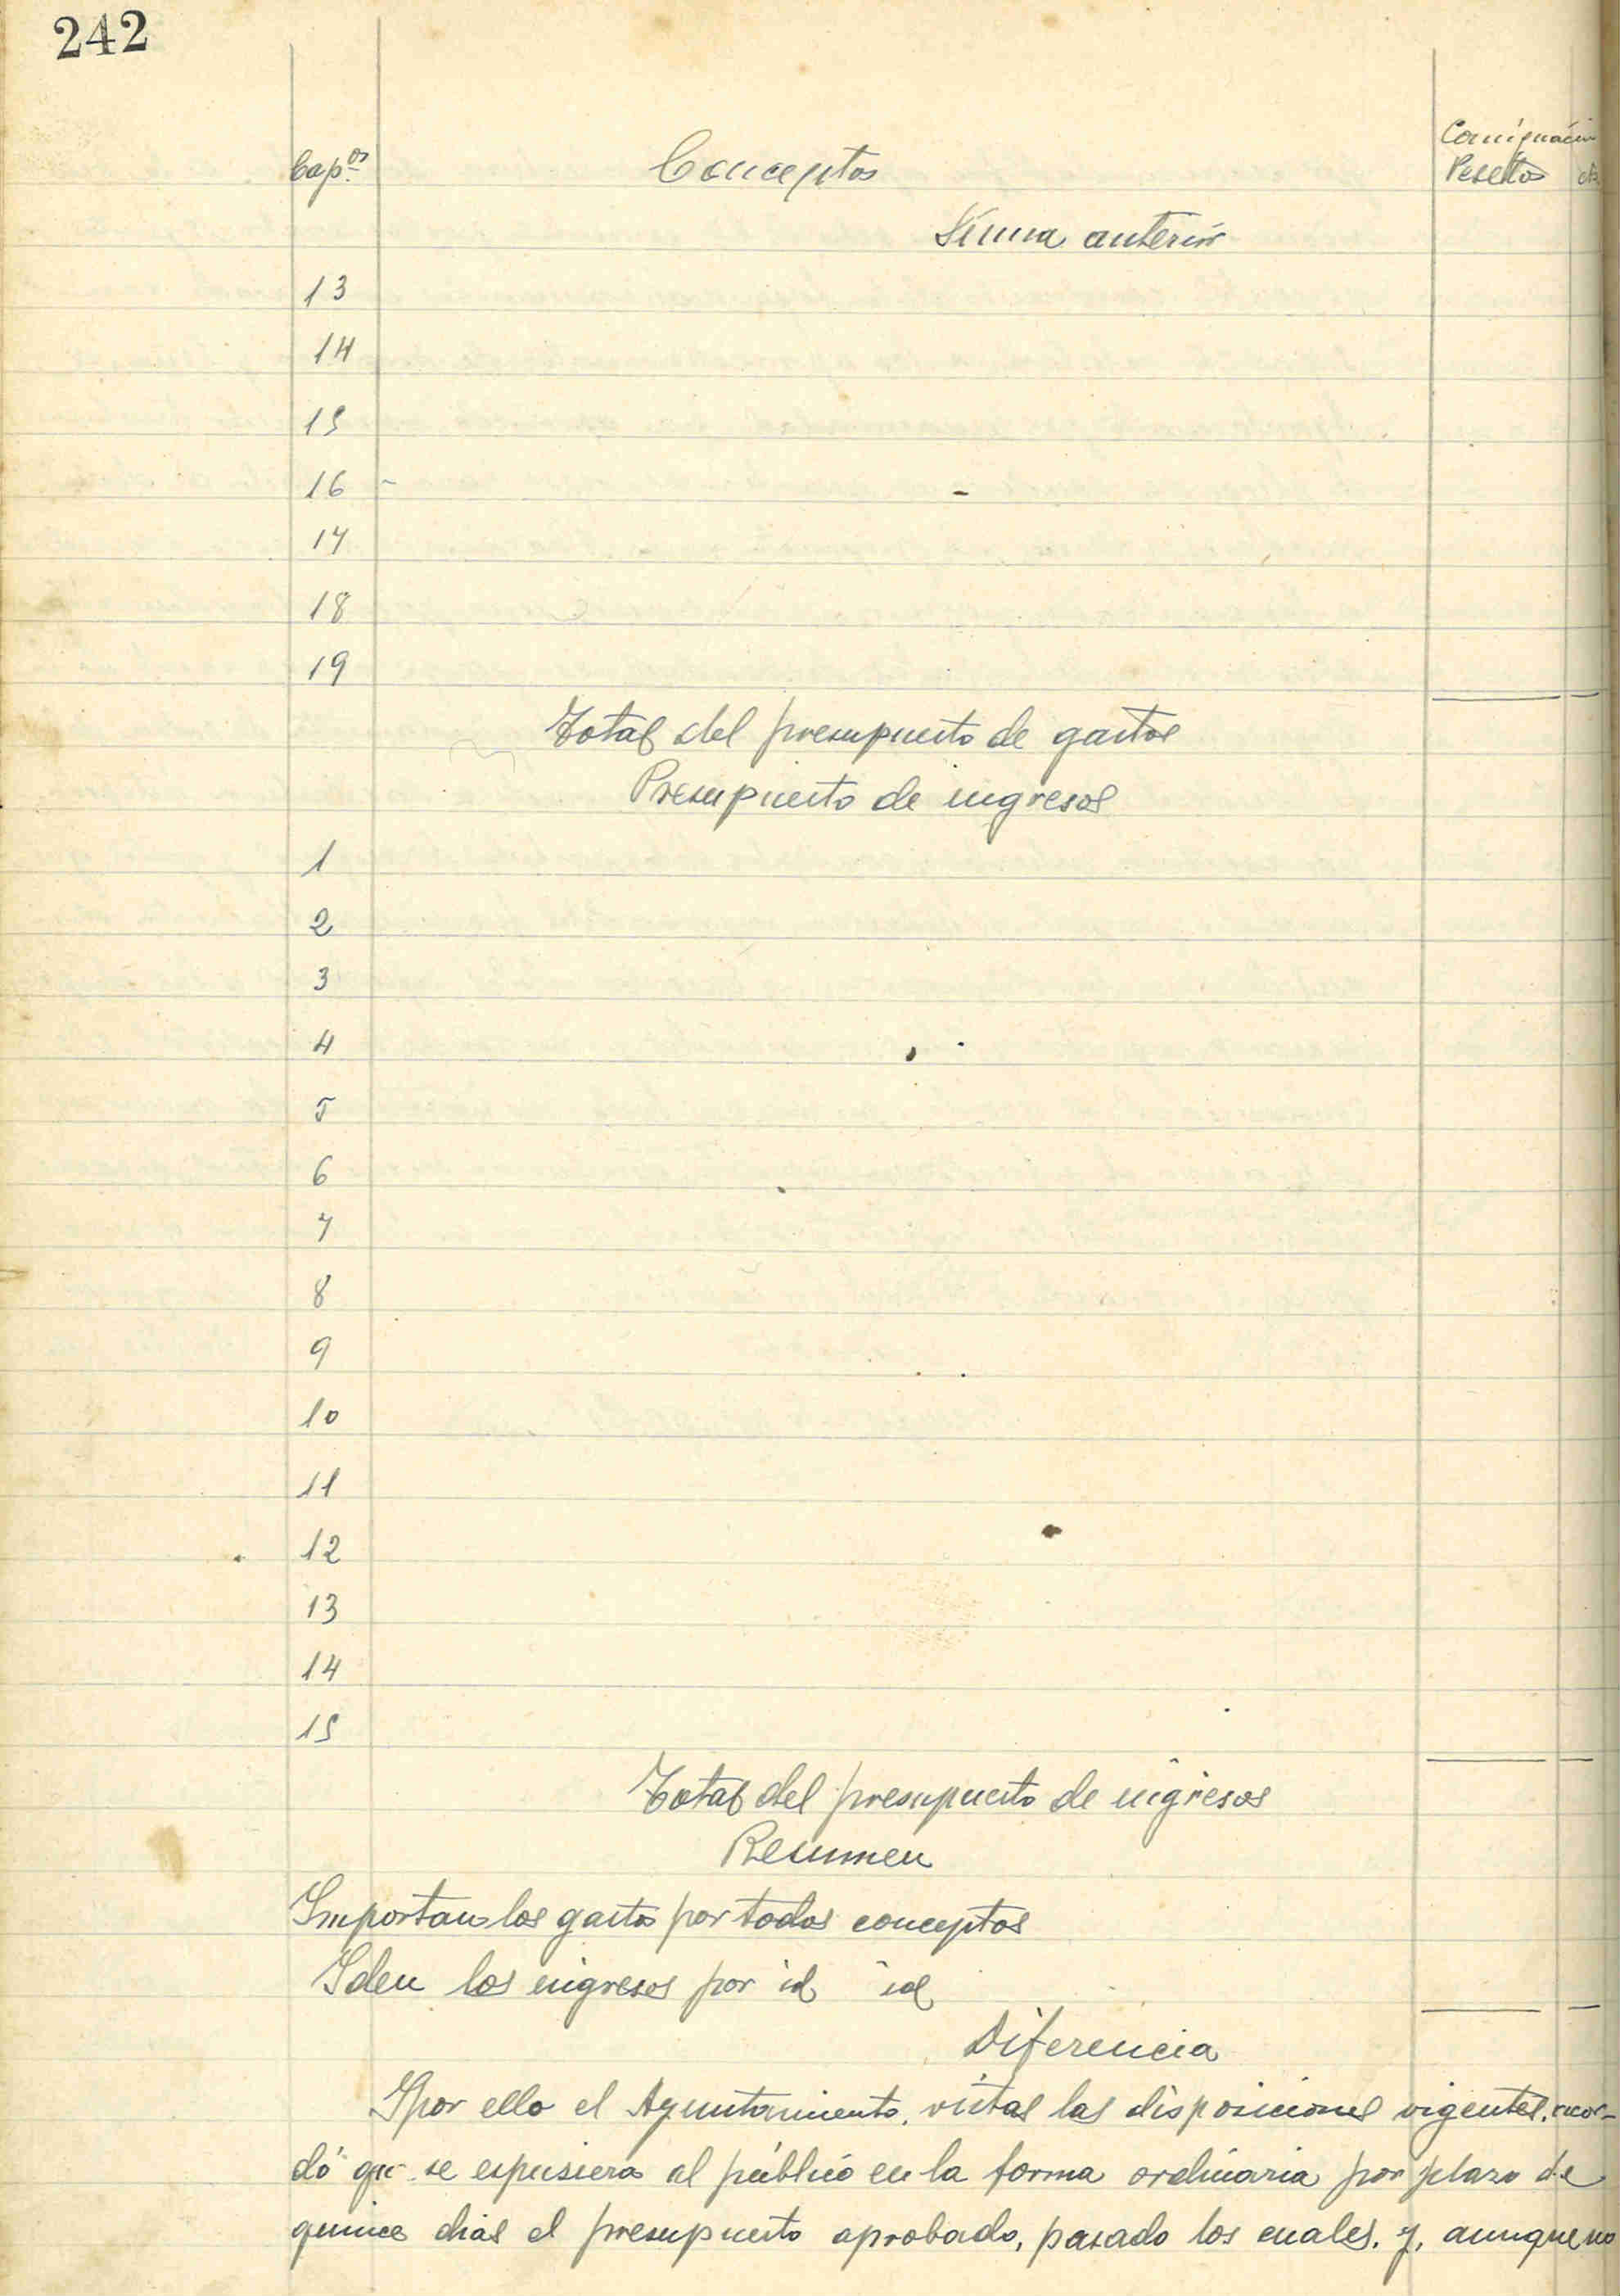 242
Cap.os Conceptos Consignación
Pesetas cts
Suma anterior
13
14
15
16
17
18
19
Total del presupuesto de gastos
Presupuesto de ingresos
1
2
3
4
5
6
7
8
9
10
11
12
13
14
15
Total del presupuesto de ingresos
Resumen
Importan los gastos por todos conceptos
Iden los ingresos por id id
Diferencia
Y por ello el Ayuntamiento, vistas las disposiciones vigentes, acor-
dó que se espusiera al público en la forma ordinaria por plazo de
quince dias el presupuesto aprobado, pasado los cuales, y, aunque no